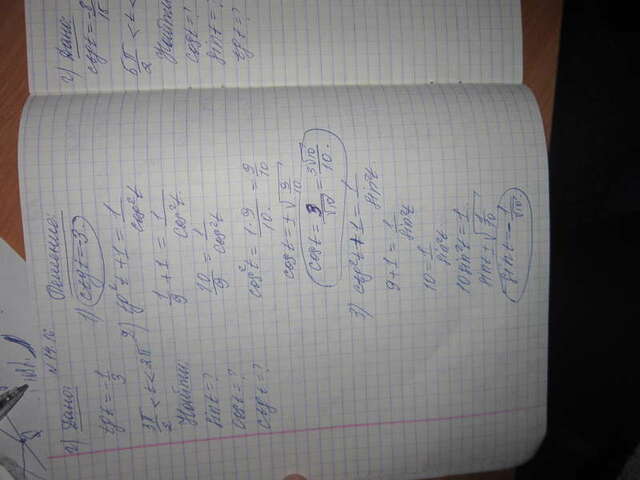 N14.16
2) Дано:
tgt = -1/3
3π/2 < t < 2π
Найти:
sint = ?
cost = ?
ctgt = ?
Решение:
1) ctgt = -3.
2) tg²t + 1 = 1/cos²t
1/9 + 1 = 1/cos²t
10/9 = 1/cos²t
cos²t = 1·9/10 = 9/10
cost = ±√9/10
cost = 3/√10 = 3√10/10.
3) ctg²t + 1 = 1/sin²t
9 + 1 = 1/sin²t
10 = 1/sin²t
10sin²t = 1
sint = √1/10
sint = -1/√10
г) Дано:
5π/2 < t <
Найти
cost = ?
sint = ?
tgt = ?